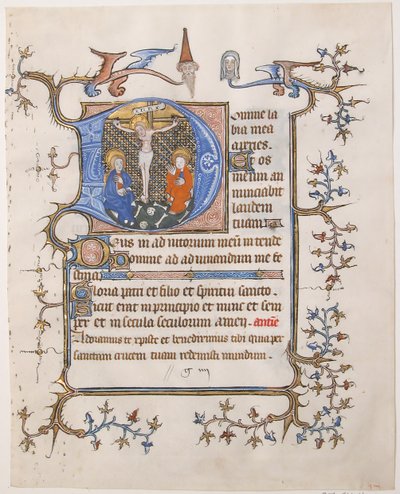 Domine la
bia mea
aperies. Et os
meum an
nunciabit
laudem
tuam.
Deus in adiutorium meum intende
domine ad adiuvandum me fe
stina
Gloria patri et filio et spiritui sancto.
Sicut erat in principio et nunc et sem
per et in secula seculorum amen. antie
Adoramus te xpiste et benedicimus tibi quia per
sanctam crucem tuam redemisti mundum.